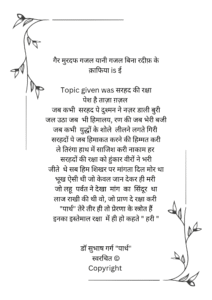 गैर मुरदफ गजल यानी गजल बिना रदीफ़ के
क़ाफिया is ई
Topic given was सरहद की रक्षा
पेश है ताज़ा ग़ज़ल
जब कभी सरहद पे दुश्मन ने नज़र डाली बुरी
जल उठा जब भी हिमालय, रण की जब भेरी बजी
जब कभी युद्धों के शोले लीलने लगते गिरी
सरहदों पे जब हिमाकत करने की हिम्मत करी
ले तिरंगा हाथ में साजिश करी नाकाम हर
सरहदों की रक्षा को हुंकार वीरों ने भरी
जीते थे सब हिम शिखर पर मांगता दिल मोर था
भूख ऐसी थी जो केवल जान देकर ही मरी
जो लहू पर्वत ने देखा मांग का सिंदूर था
लाज राखी की थी वो, जो प्राण दे रक्षा करी
"पार्थ" तेरे तीर ही तो प्रेरणा के स्त्रोत हैं
इनका इस्तेमाल रक्षा में ही हो कहते " हरी "
डॉ सुभाष गर्ग "पार्थ"
स्वरचित ©
Copyright